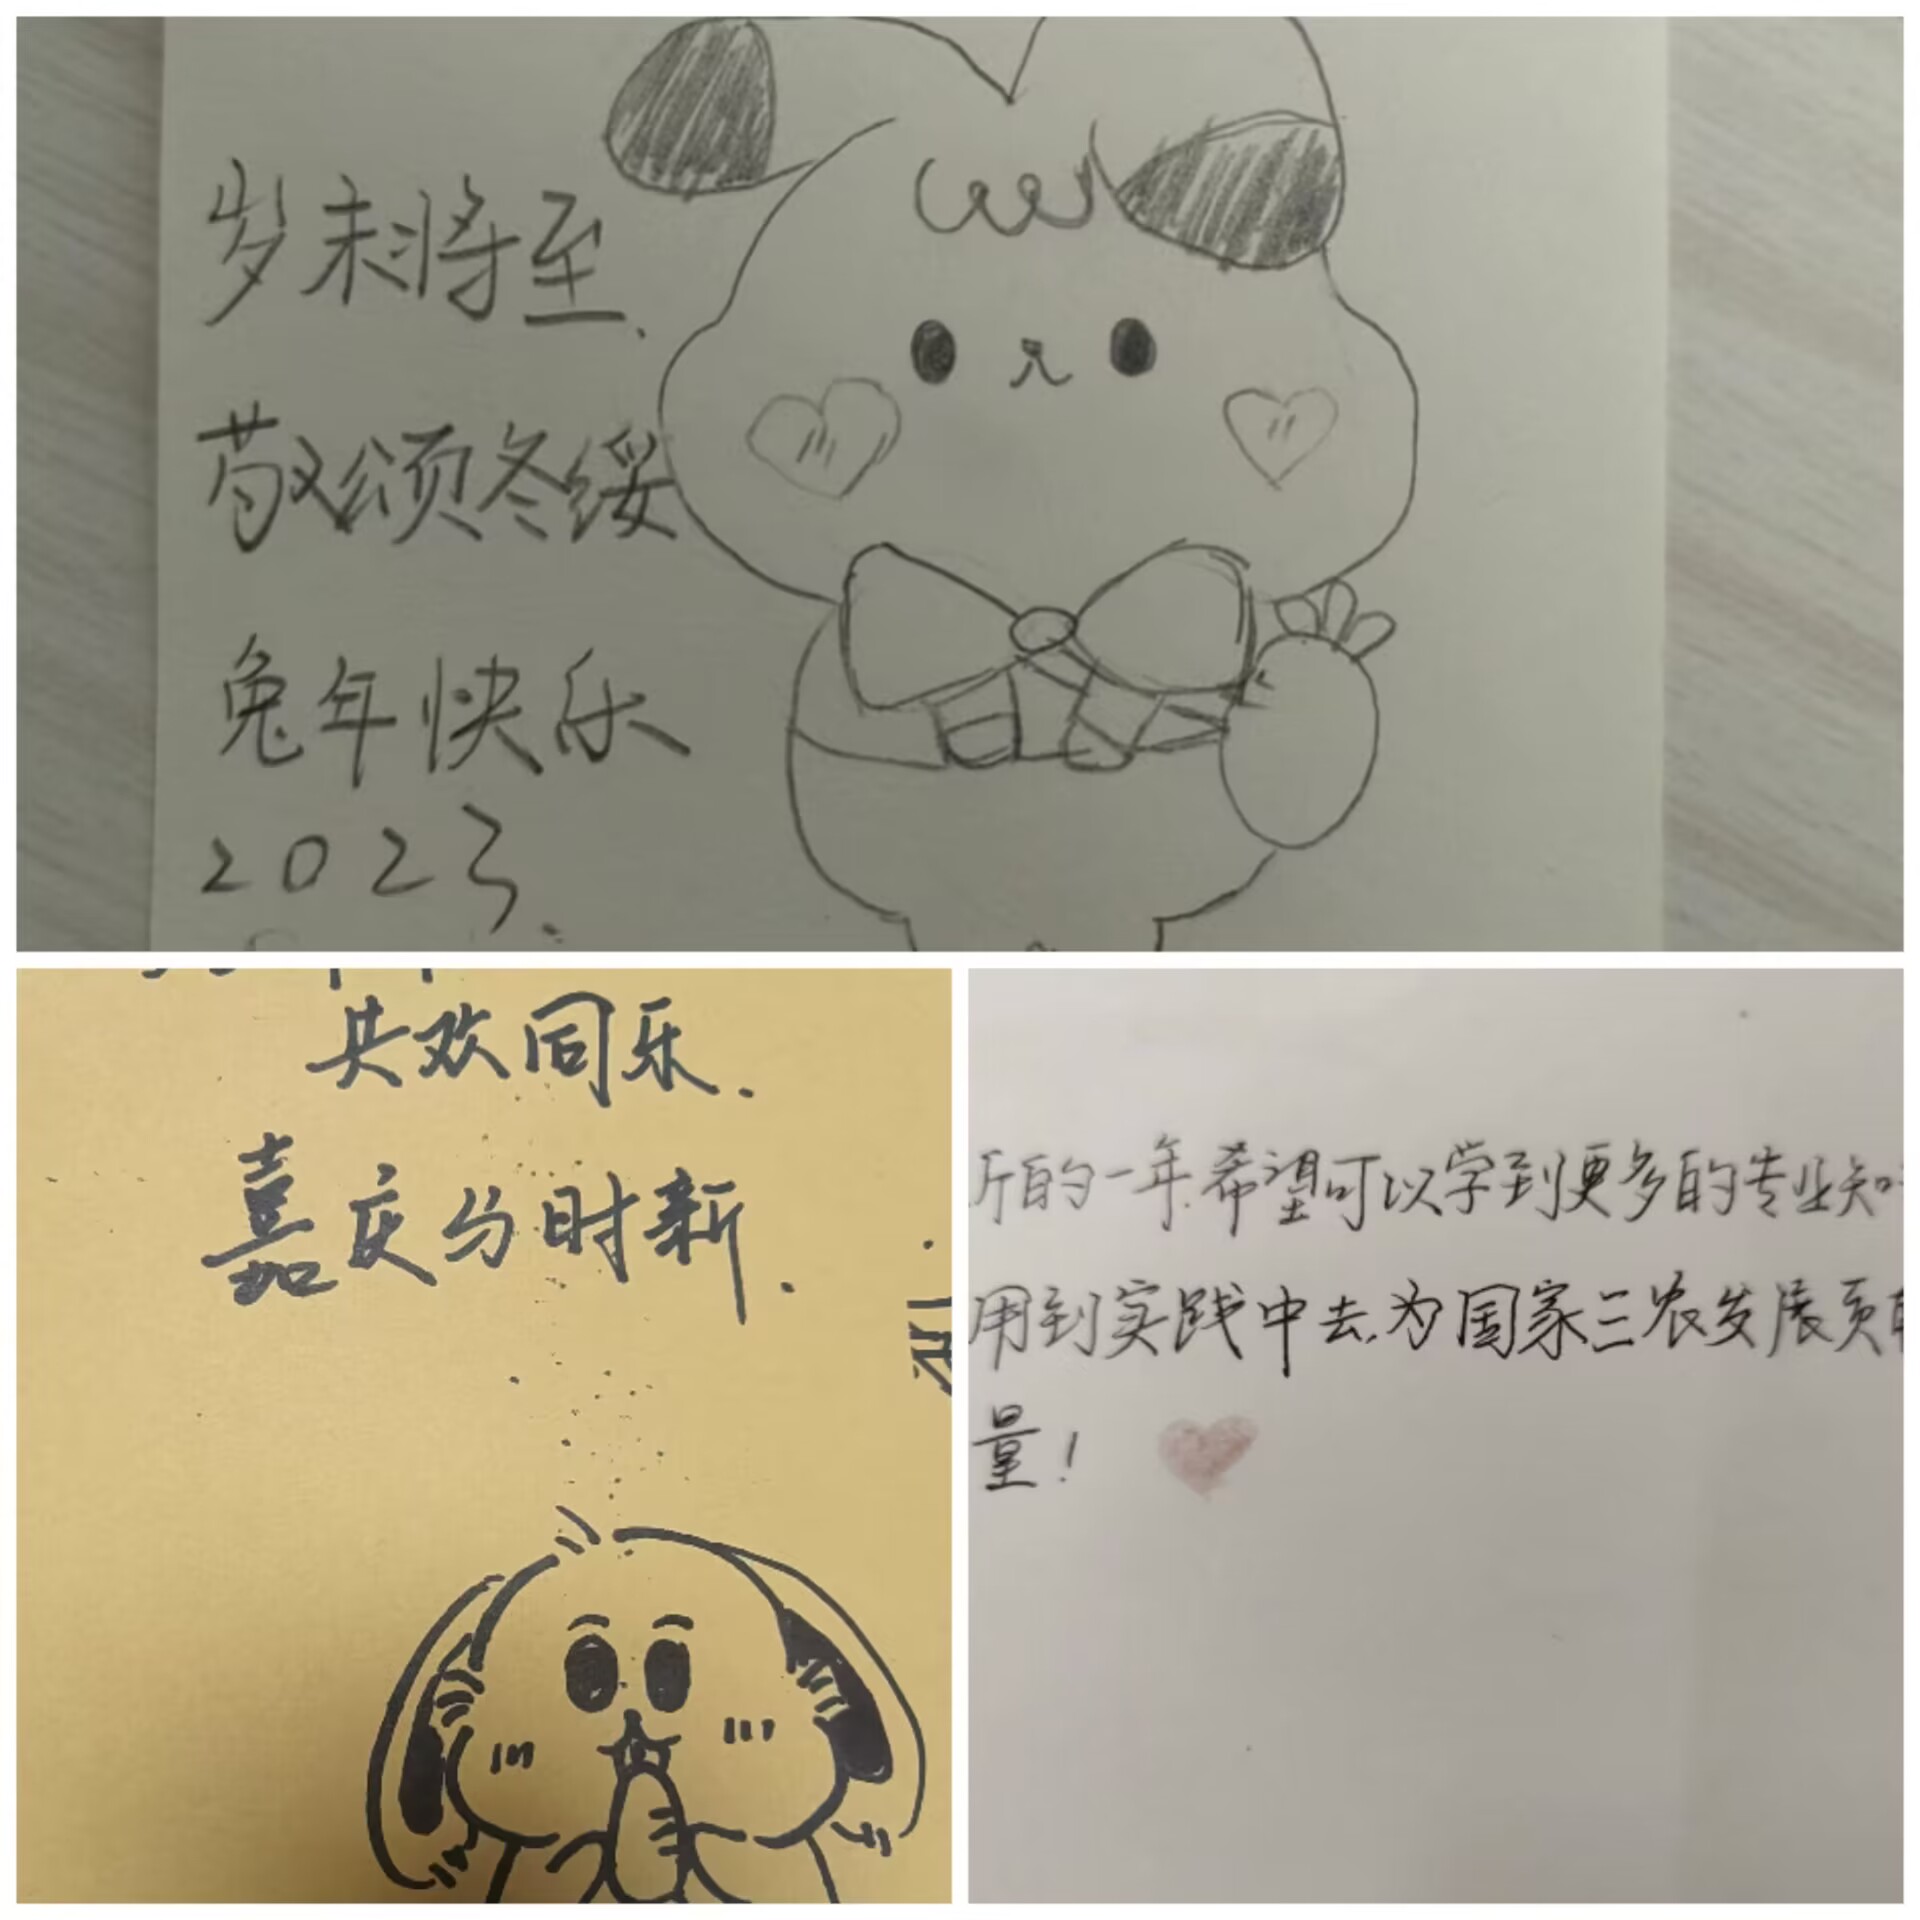 岁末将至.
敬颂冬绥
兔年快乐
2023.
共欢同乐.
嘉庆分时新.
的一年.希望可以学到更多的专业知
用到实践中去,为国家三农发展贡
量!